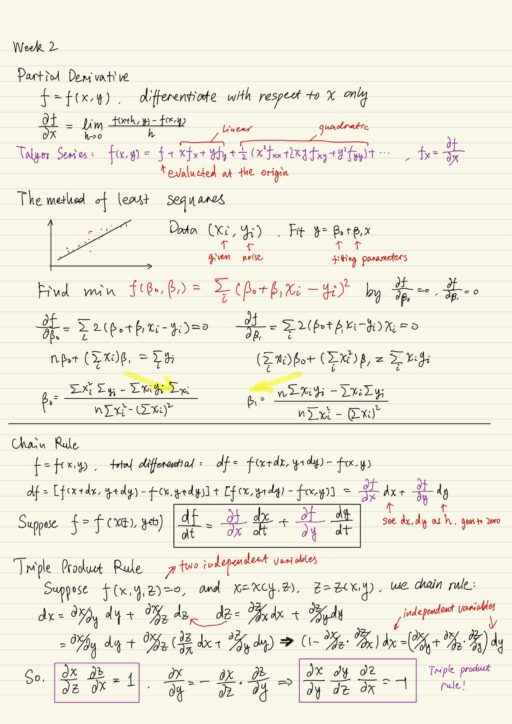 Week 2
Partial Derivative
f = f(x,y) . differentiate with respect to x only
∂f/∂x = lim h→0 (f(x+h, y) - f(x,y))/h
linear quadratic
Talyor Series: f(x,y) = f + xfx + yfy + 1/2 (x²fxx + 2xyfxy + y²fyy) + ··· , fx = ∂f/∂x
↑ evaluated at the origin
The method of least sequares
Data (xi, yi) . Fit y = β0 + β1x
given noise fitting parameters
Find min f(β0, β1) = Σi (β0 + β1xi - yi)² by ∂f/∂β0 = 0 . ∂f/∂β1 = 0
∂f/∂β0 = Σi 2(β0 + β1xi - yi) = 0 ∂f/∂β1 = Σi 2(β0 + β1xi - yi)xi = 0
nβ0 + (Σi xi)β1 = Σi yi (Σi xi)β0 + (Σi xi²)β1 = Σi xiyi
β0 = (Σxi²Σyi - ΣxiyiΣxi)/(nΣxi² - (Σxi)²) β1 = (nΣxiyi - ΣxiΣyi)/(nΣxi² - (Σxi)²)
Chain Rule
f = f(x,y) . total differential: df = f(x+dx, y+dy) - f(x,y)
df = [f(x+dx, y+dy) - f(x,y+dy)] + [f(x,y+dy) - f(x,y)] = ∂f/∂x dx + ∂f/∂y dy
see dx, dy as h. goes to zero
Suppose f = f(x(t), y(t)) df/dt = ∂f/∂x dx/dt + ∂f/∂y dy/dt
Triple Product Rule
two independent variables
Suppose f(x,y,z)=0, and x=x(y,z), z=z(x,y), use chain rule:
dx = ∂x/∂y dy + ∂x/∂z dz dz = ∂z/∂x dx + ∂z/∂y dy
independent variables
= ∂x/∂y dy + ∂x/∂z (∂z/∂x dx + ∂z/∂y dy) ⇒ (1 - ∂x/∂z · ∂z/∂x) dx = (∂x/∂y + ∂x/∂z · ∂z/∂y) dy
So. ∂x/∂z ∂z/∂x = 1 . ∂x/∂y = - ∂x/∂z · ∂z/∂y ⇒ ∂x/∂y ∂y/∂z ∂z/∂x = -1
Triple product
rule!